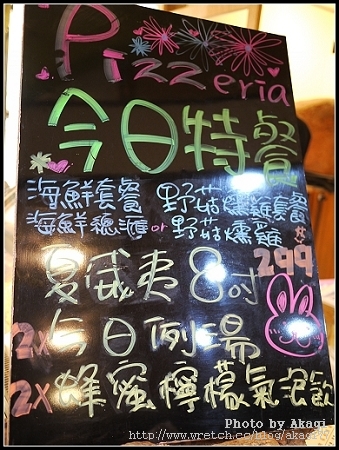 Pizzeria
今日特餐
海鮮套餐 野菇燻雞套餐
海鮮總滙 or 野菇燻雞
夏威夷 8吋 299
2x 今日例湯
2x 蜂蜜檸檬氣泡飲
Photo by Akagi
http://www.wretch.cc/blog/akagi